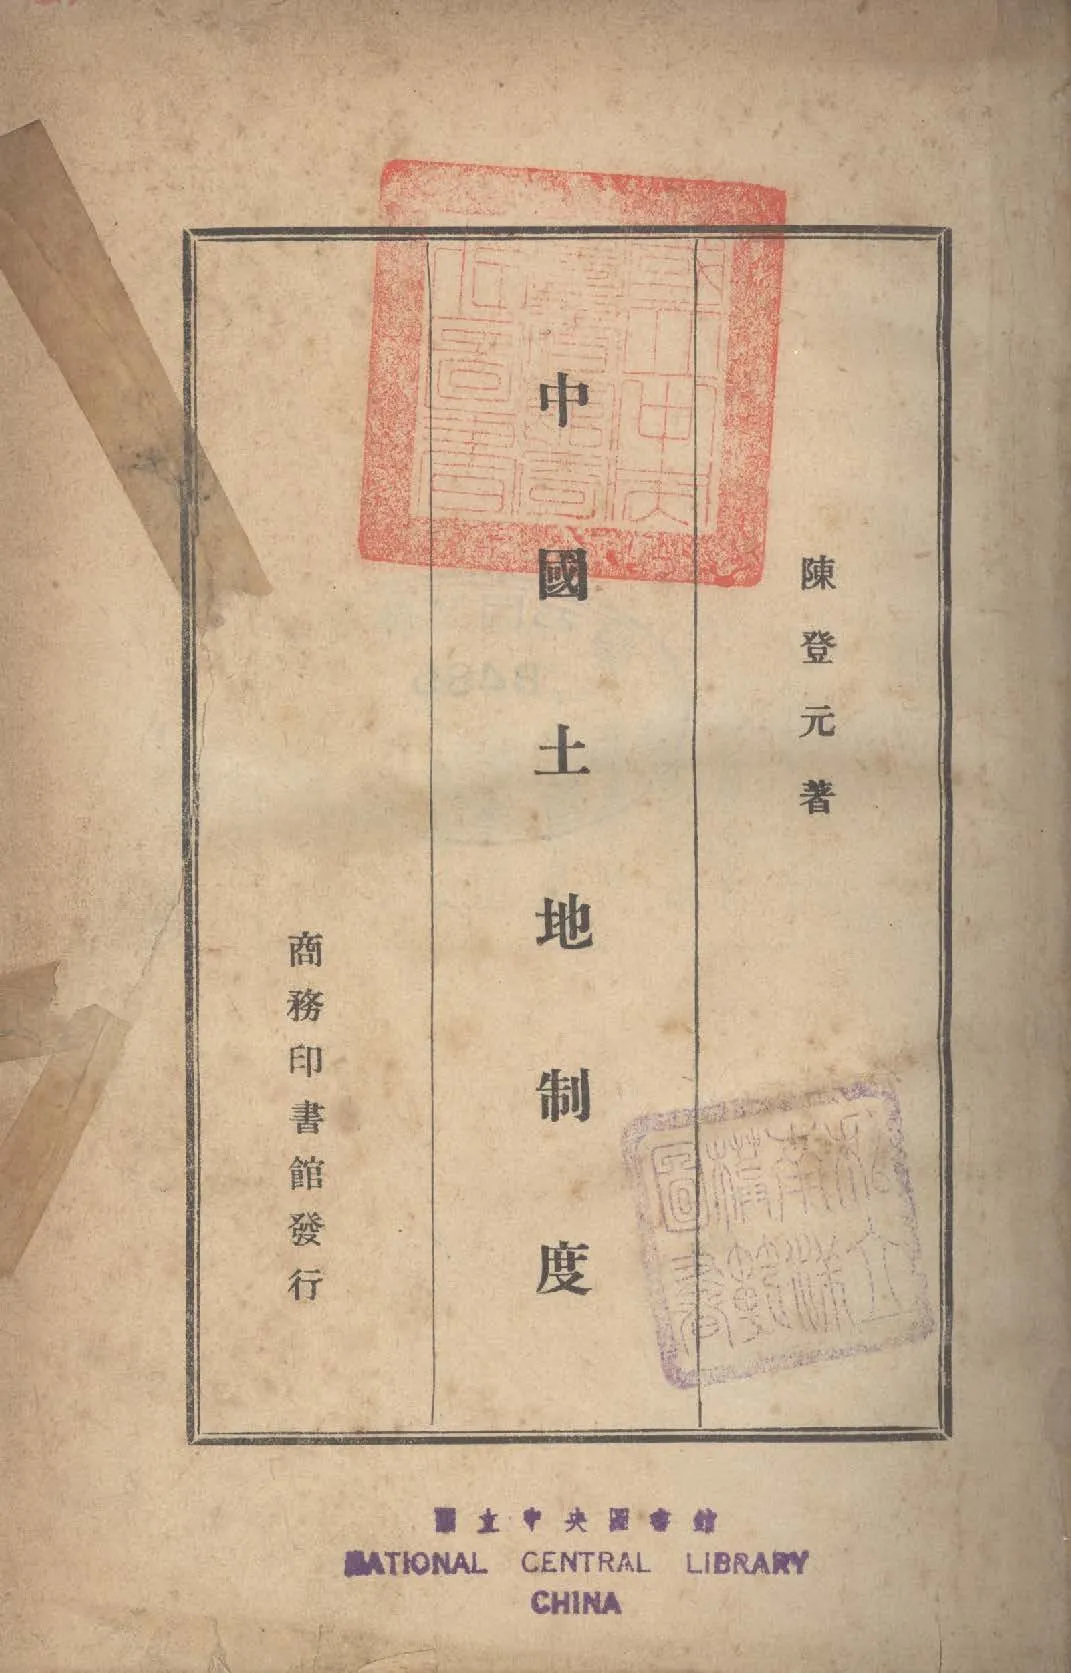 陳登元著
中國土地制度
商務印書館發行
國立中央圖書館
NATIONAL CENTRAL LIBRARY
CHINA